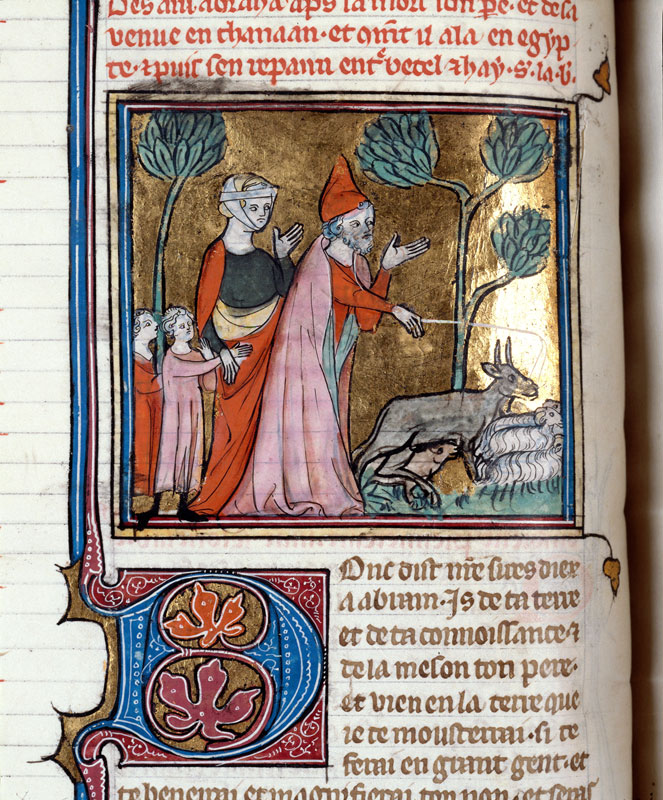 Des ani abraha aps la mort son pe · et de sa
venue en chanaan · et q̄nt il ala en egyp
te · ⁊ puis sen repaira ent͛ betel ⁊ hay · S · la · b̄ ·
Donc dist nr̄e sires diex
a abram · Is de ta terre
et de ta connoissance · ⁊
de la meson ton pere ·
et vien en la terre que
ie te mousterrai · si te
ferai en grant gent · et
te beneirai et magnifierai ton non · et seras